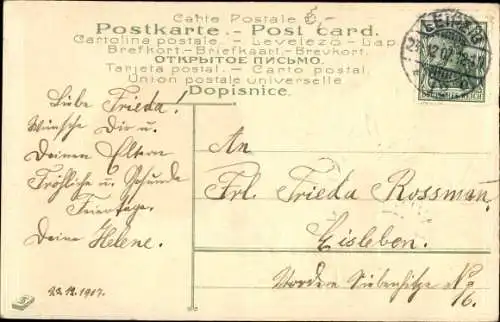 Carte Postale
Postkarte. - Post card.
Cartolina postale. - Levelező-Lap
Brefkort. - Briefkaart. - Brevkort.
ОТКРЫТОЕ ПИСЬМО.
Tarjeta postal. - Carto postal.
Union postale universelle
Dopisnice.
LEIPZIG
12 07
DEUTSCHES REICH
Liebe Frieda!
Wünsche Dir u.
Deinen Eltern
Fröhliche u. Gesunde
Feiertage.
Deine Helene.
23.12.1907.
An
Frl. Frieda Rossman.
Eisleben.
Vordere Siebenhitze No
16.